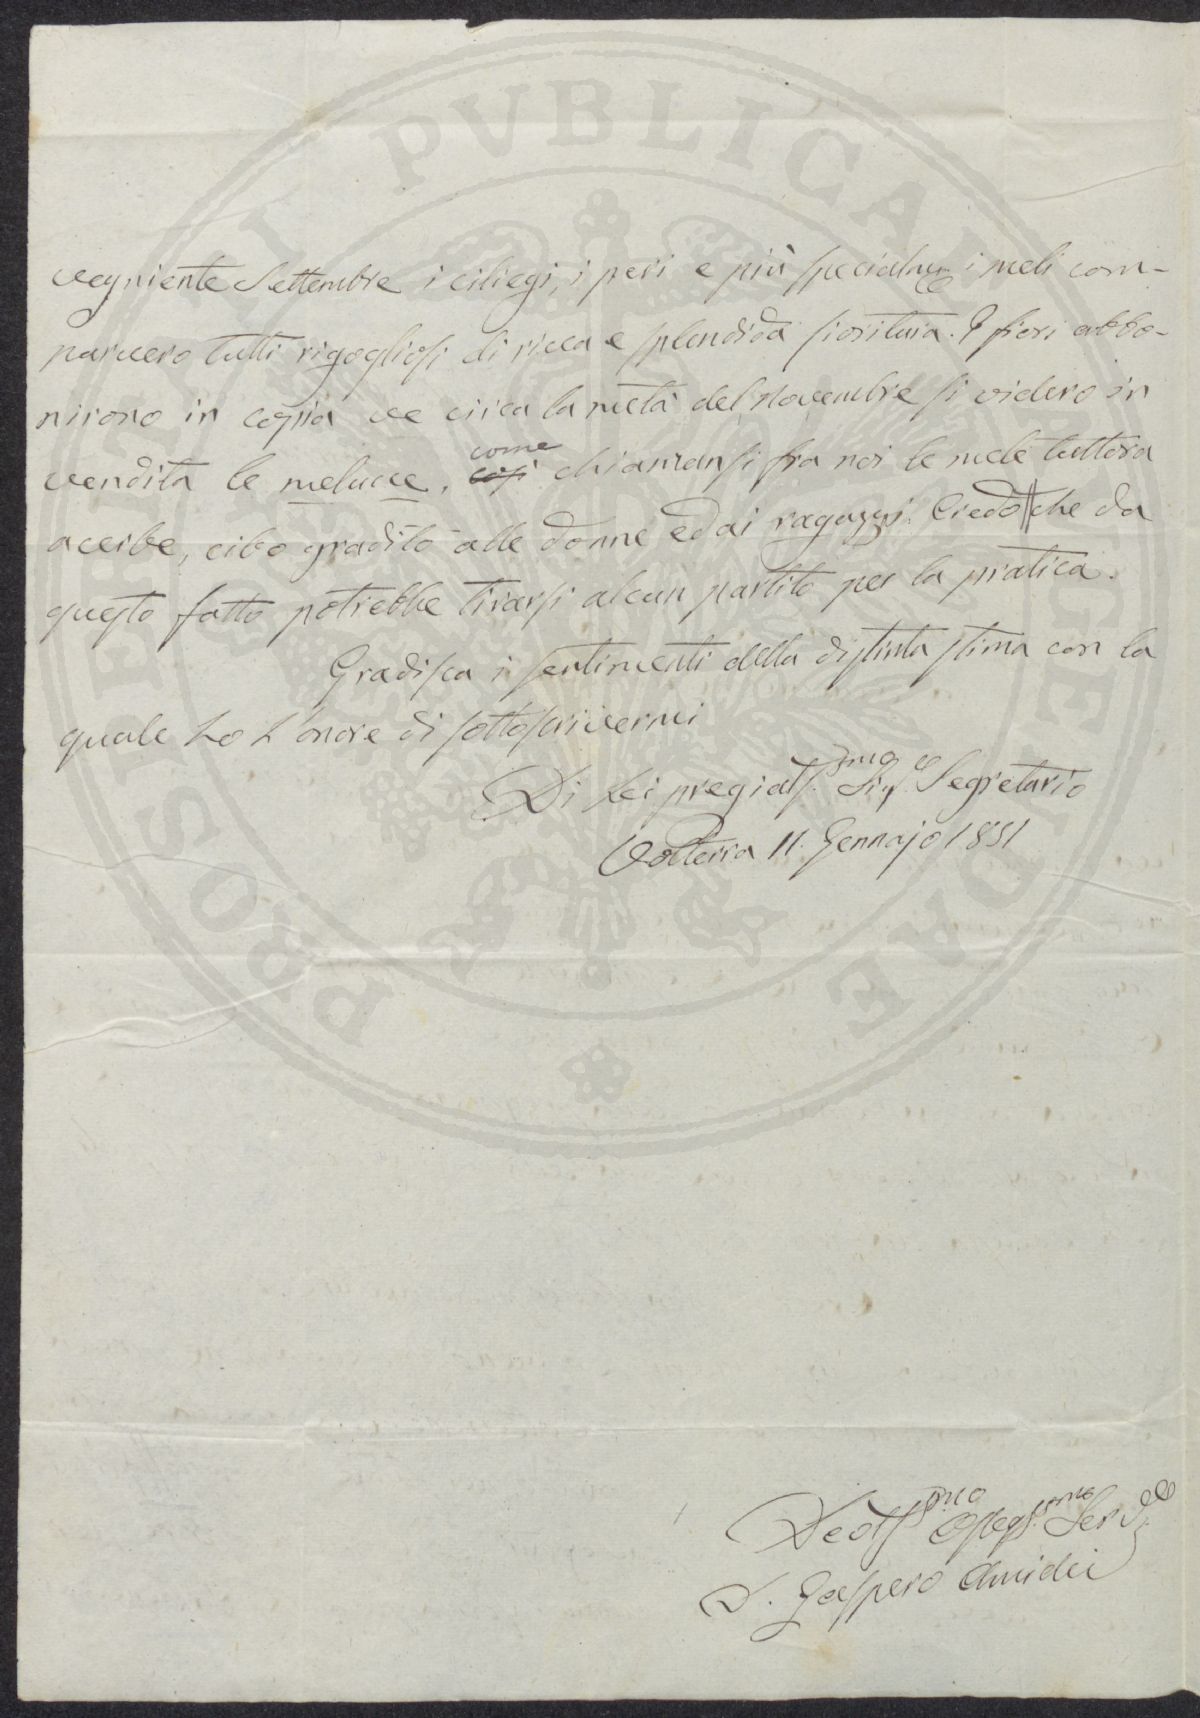 vegniente Settembre i ciliegi, i peri e più specialm.e i meli com-
parvero tutti rigogliosi di ricca e splendida fioritura. I fiori abbo-
nirono in copia e circa la metà del Novembre si videro in
vendita le melucce, come
così chiamansi fra noi le mele tuttora
acerbe, cibo gradito alle donne ed ai ragazzi. Credo che da
questo fatto potrebbe tirarsi alcun partito per la pratica.
Gradisca i sentimenti della distinta stima con la
quale ho l'onore di sottoscrivermi
Di Lei pregiats.mo Sig.e Segretario
Volterra 11. Gennajo 1831
Devots.mo Obbgs.mo Ser.de
D. Gaspero Amidei
PROSPERITATI PUBLICAE AUGENDAE